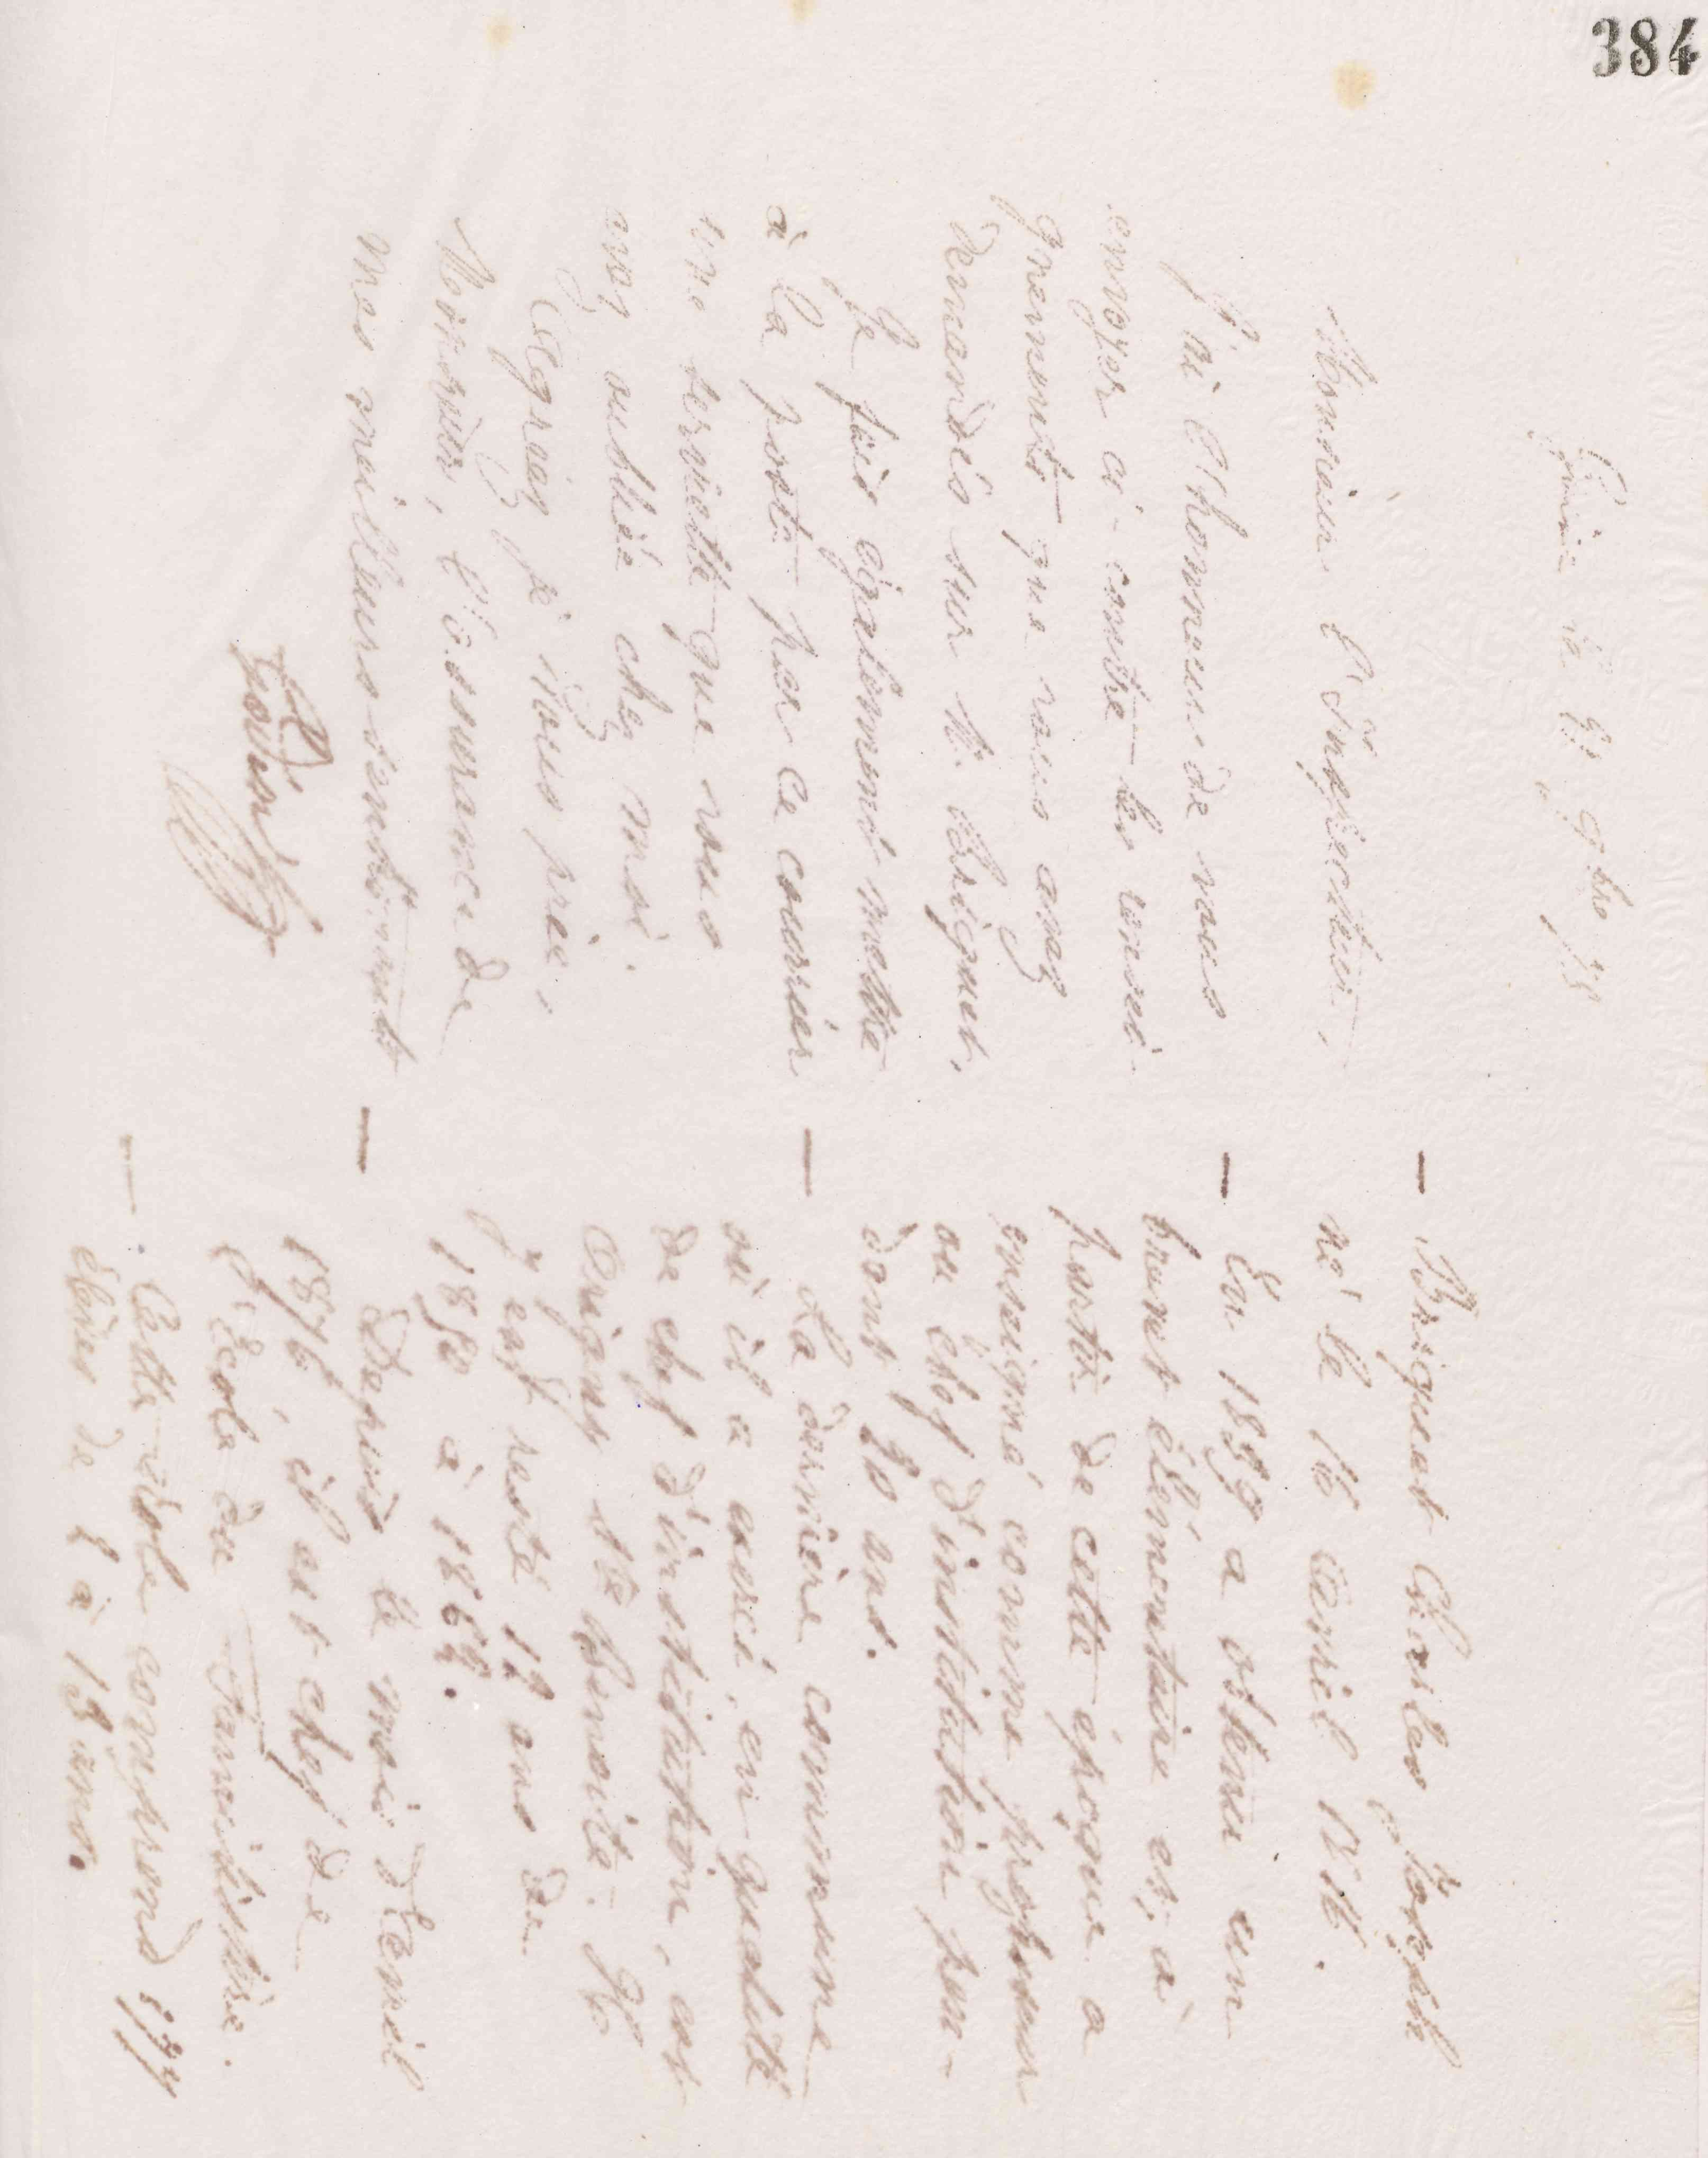 384
Guise le 9bre 78
Monsieur l'Inspecteur,
J'ai l'honneur de vous
envoyer ci-contre les rensei-
gnements que vous avez
demandés sur M. Briquet.
Je fais également mettre
à la poste par ce courrier
une serviette que vous
avez oubliée chez moi.
Agréez je vous prie,
Monsieur, l'assurance de
mes meilleurs sentiments
Godin
— Briquet Charles Joseph
né le 16 avril 1818.
— En 1839 a obtenu un
brevet élémentaire et, à
partir de cette époque a
enseigné comme professeur
ou chef d'institution pen-
dant 30 ans.
— La dernière commune
où il a exercé, en qualité
de chef d'institution, est
Origny Ste Benoite. Il
y est resté 12 ans de
à 
— Depuis le mois d'avril
1876, il est chef de
l'école du Familistère.
— Cette école comprend
élèves de à 13 ans.